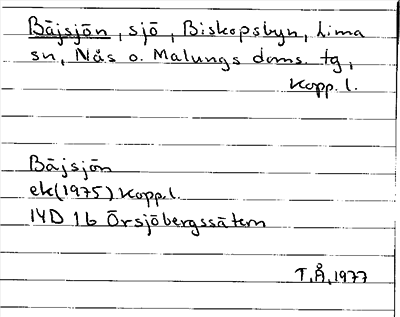 Bäjsjön, sjö, Biskopsbyn, Lima
sn, Nås o. Malungs doms. tg,
Kopp. l.
Bäjsjön
ek(1975) Kopp.l.
14D 1b Örsjöbergssätern
T.Å, 1977